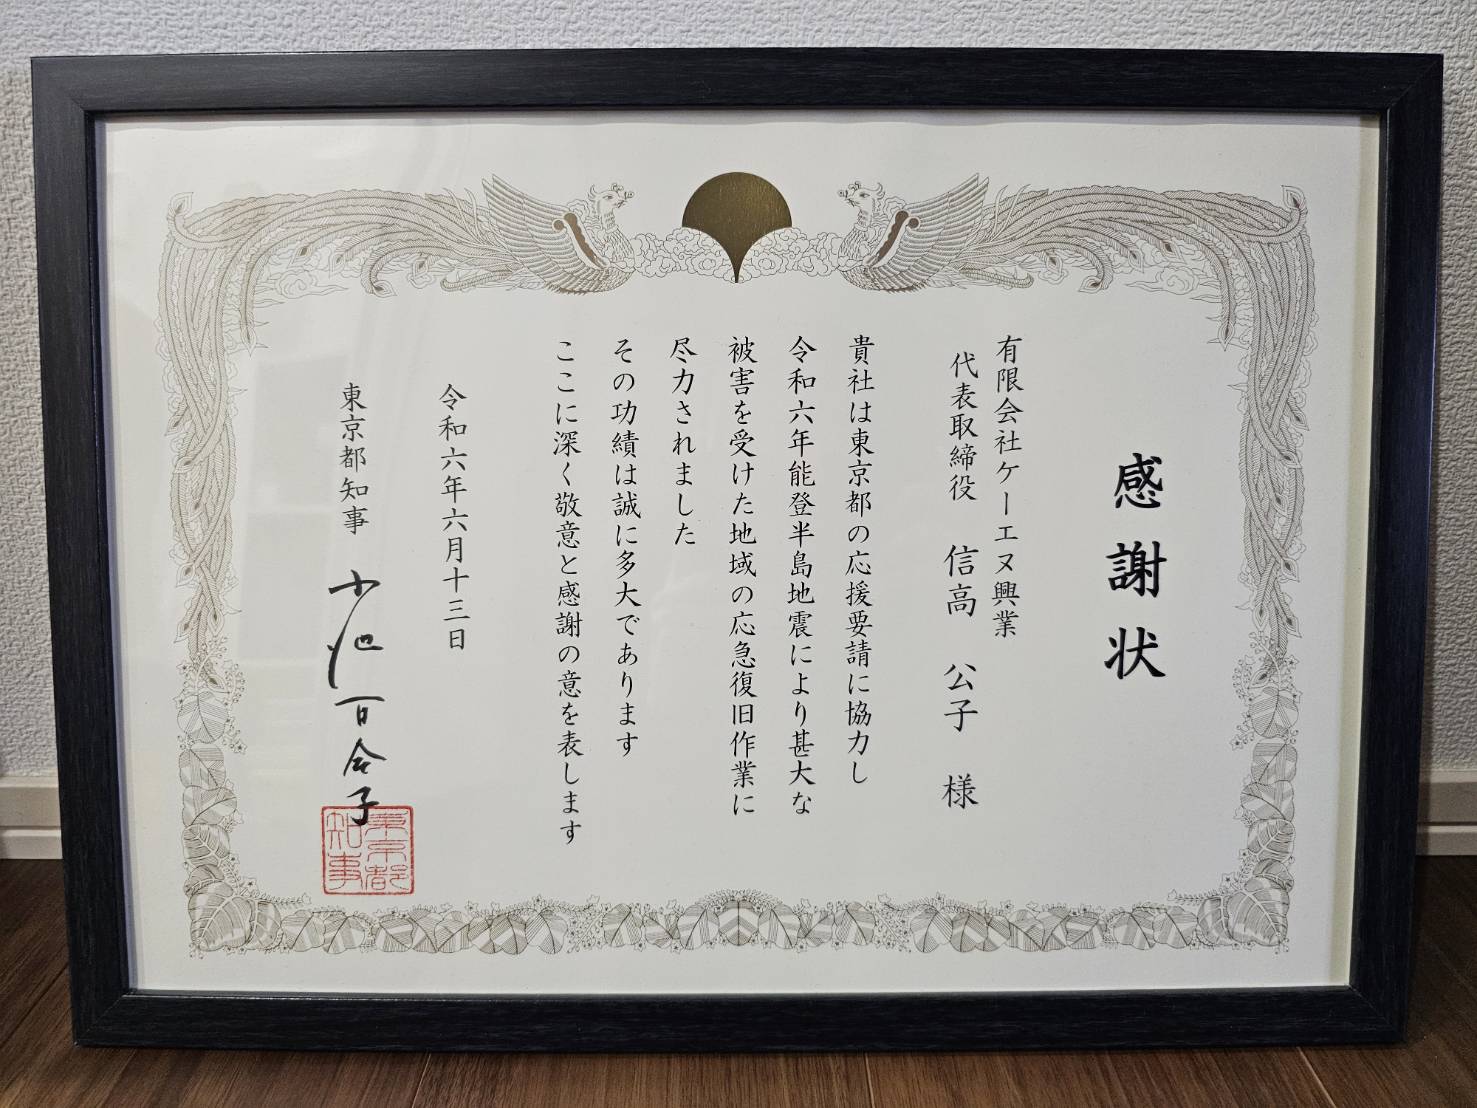 感謝状
有限会社ケーエヌ興業
代表取締役 信高 公子 様
貴社は東京都の応援要請に協力し
令和六年能登半島地震により甚大な
被害を受けた地域の応急復旧作業に
尽力されました
その功績は誠に多大であります
ここに深く敬意と感謝の意を表します
令和六年六月十三日
東京都知事 小池百合子
東京都
知事